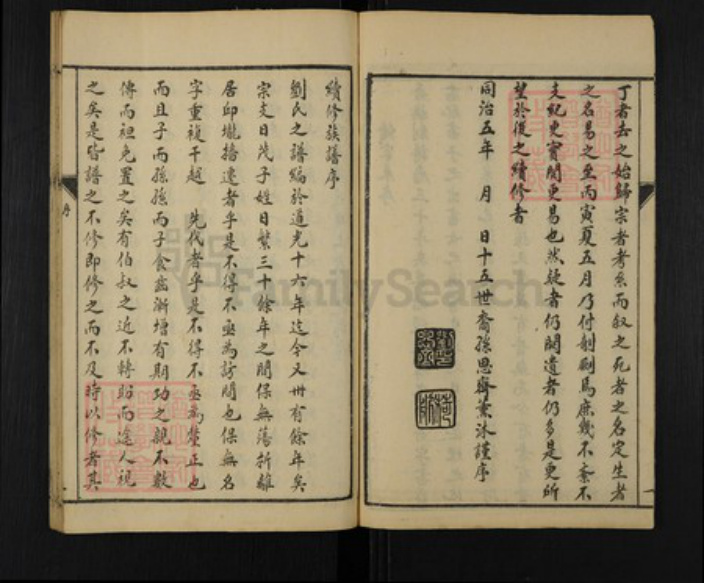 丁者去之始歸宗者考系而叙之死者之名定生者
之名易之至丙寅夏五月乃付剞劂焉庶幾不紊不
支紀更實間更易也然疑者仍闕遺者仍多是更所
望於後之續修者
同治五年　月　日十五世裔孫思齊薰沐謹序
續修族譜序
劉氏之譜編於道光十六年迄今又卅有餘年矣
宗支日茂子姓日繁三十餘年之間保無蕩折離
居邱壠播遷者乎是不得不亟為訪問也保無名
字重複干越　先代者乎是不得不亟為釐正也
而且子而孫孫而子食齒漸增有期功之親不數
傳而袒免置之矣有伯叔之近不轉盼而途人視
之矣是皆譜之不修即修之而不及時以修者其
序
FamilySearch